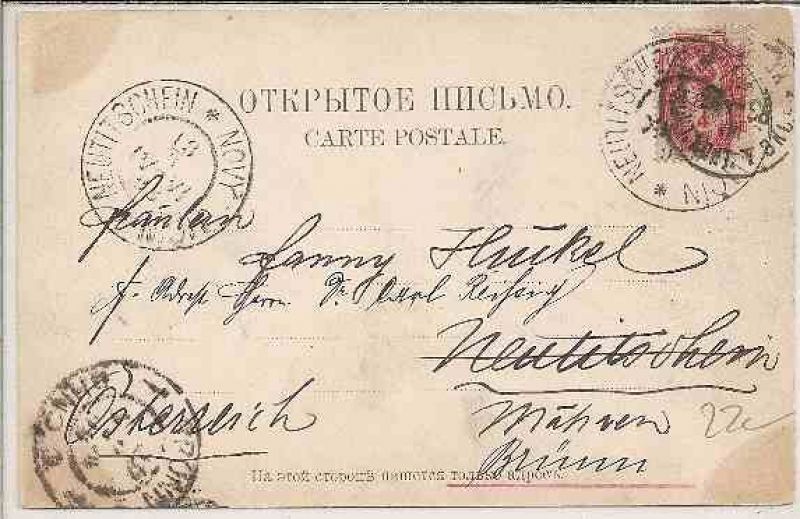 ОТКРЫТОЕ ПИСЬМО.
CARTE POSTALE.
NEUTITSCHEIN * NOVÝ
NEUTITSCHEIN *
Fräulein
Fanny Huckel
p. Adress Herrn Dr. Carl
Neutitschein
Österreich
Mähren
22e
Brünn
На этой сторонѣ пишется только адресъ.